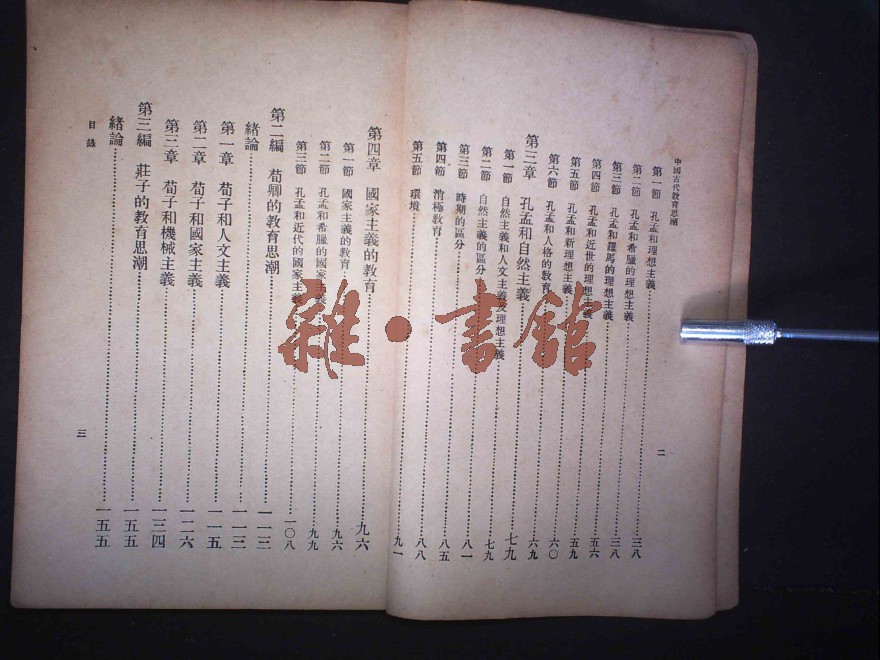 中國古代教育思潮
第一節 孔孟和理想主義……三八
第二節 孔孟和希臘的理想主義……三八
第三節 孔孟和羅馬的理想主義……五六
第四節 孔孟和近世的理想主義……五九
第五節 孔孟和新理想主義……六〇
第六節 孔孟和人格的教育……六九
第三章 孔孟和自然主義……七九
第一節 自然主義和人文主義及理想主義……七九
第二節 自然主義的區分……八一
第三節 時期的區分……八五
第四節 消極教育……八八
第五節 環境……九一
二
第四章 國家主義的教育……九六
第一節 國家主義的教育……九六
第二節 孔孟和希臘的國家主義……九九
第三節 孔孟和近代的國家主義……一〇八
第二編 荀卿的教育思潮……一一三
緒論……一一三
第一章 荀子和人文主義……一一五
第二章 荀子和國家主義……一二六
第三章 荀子和機械主義……一三四
第三編 莊子的教育思潮……一五五
緒論……一五五
目錄
三
雜·書館